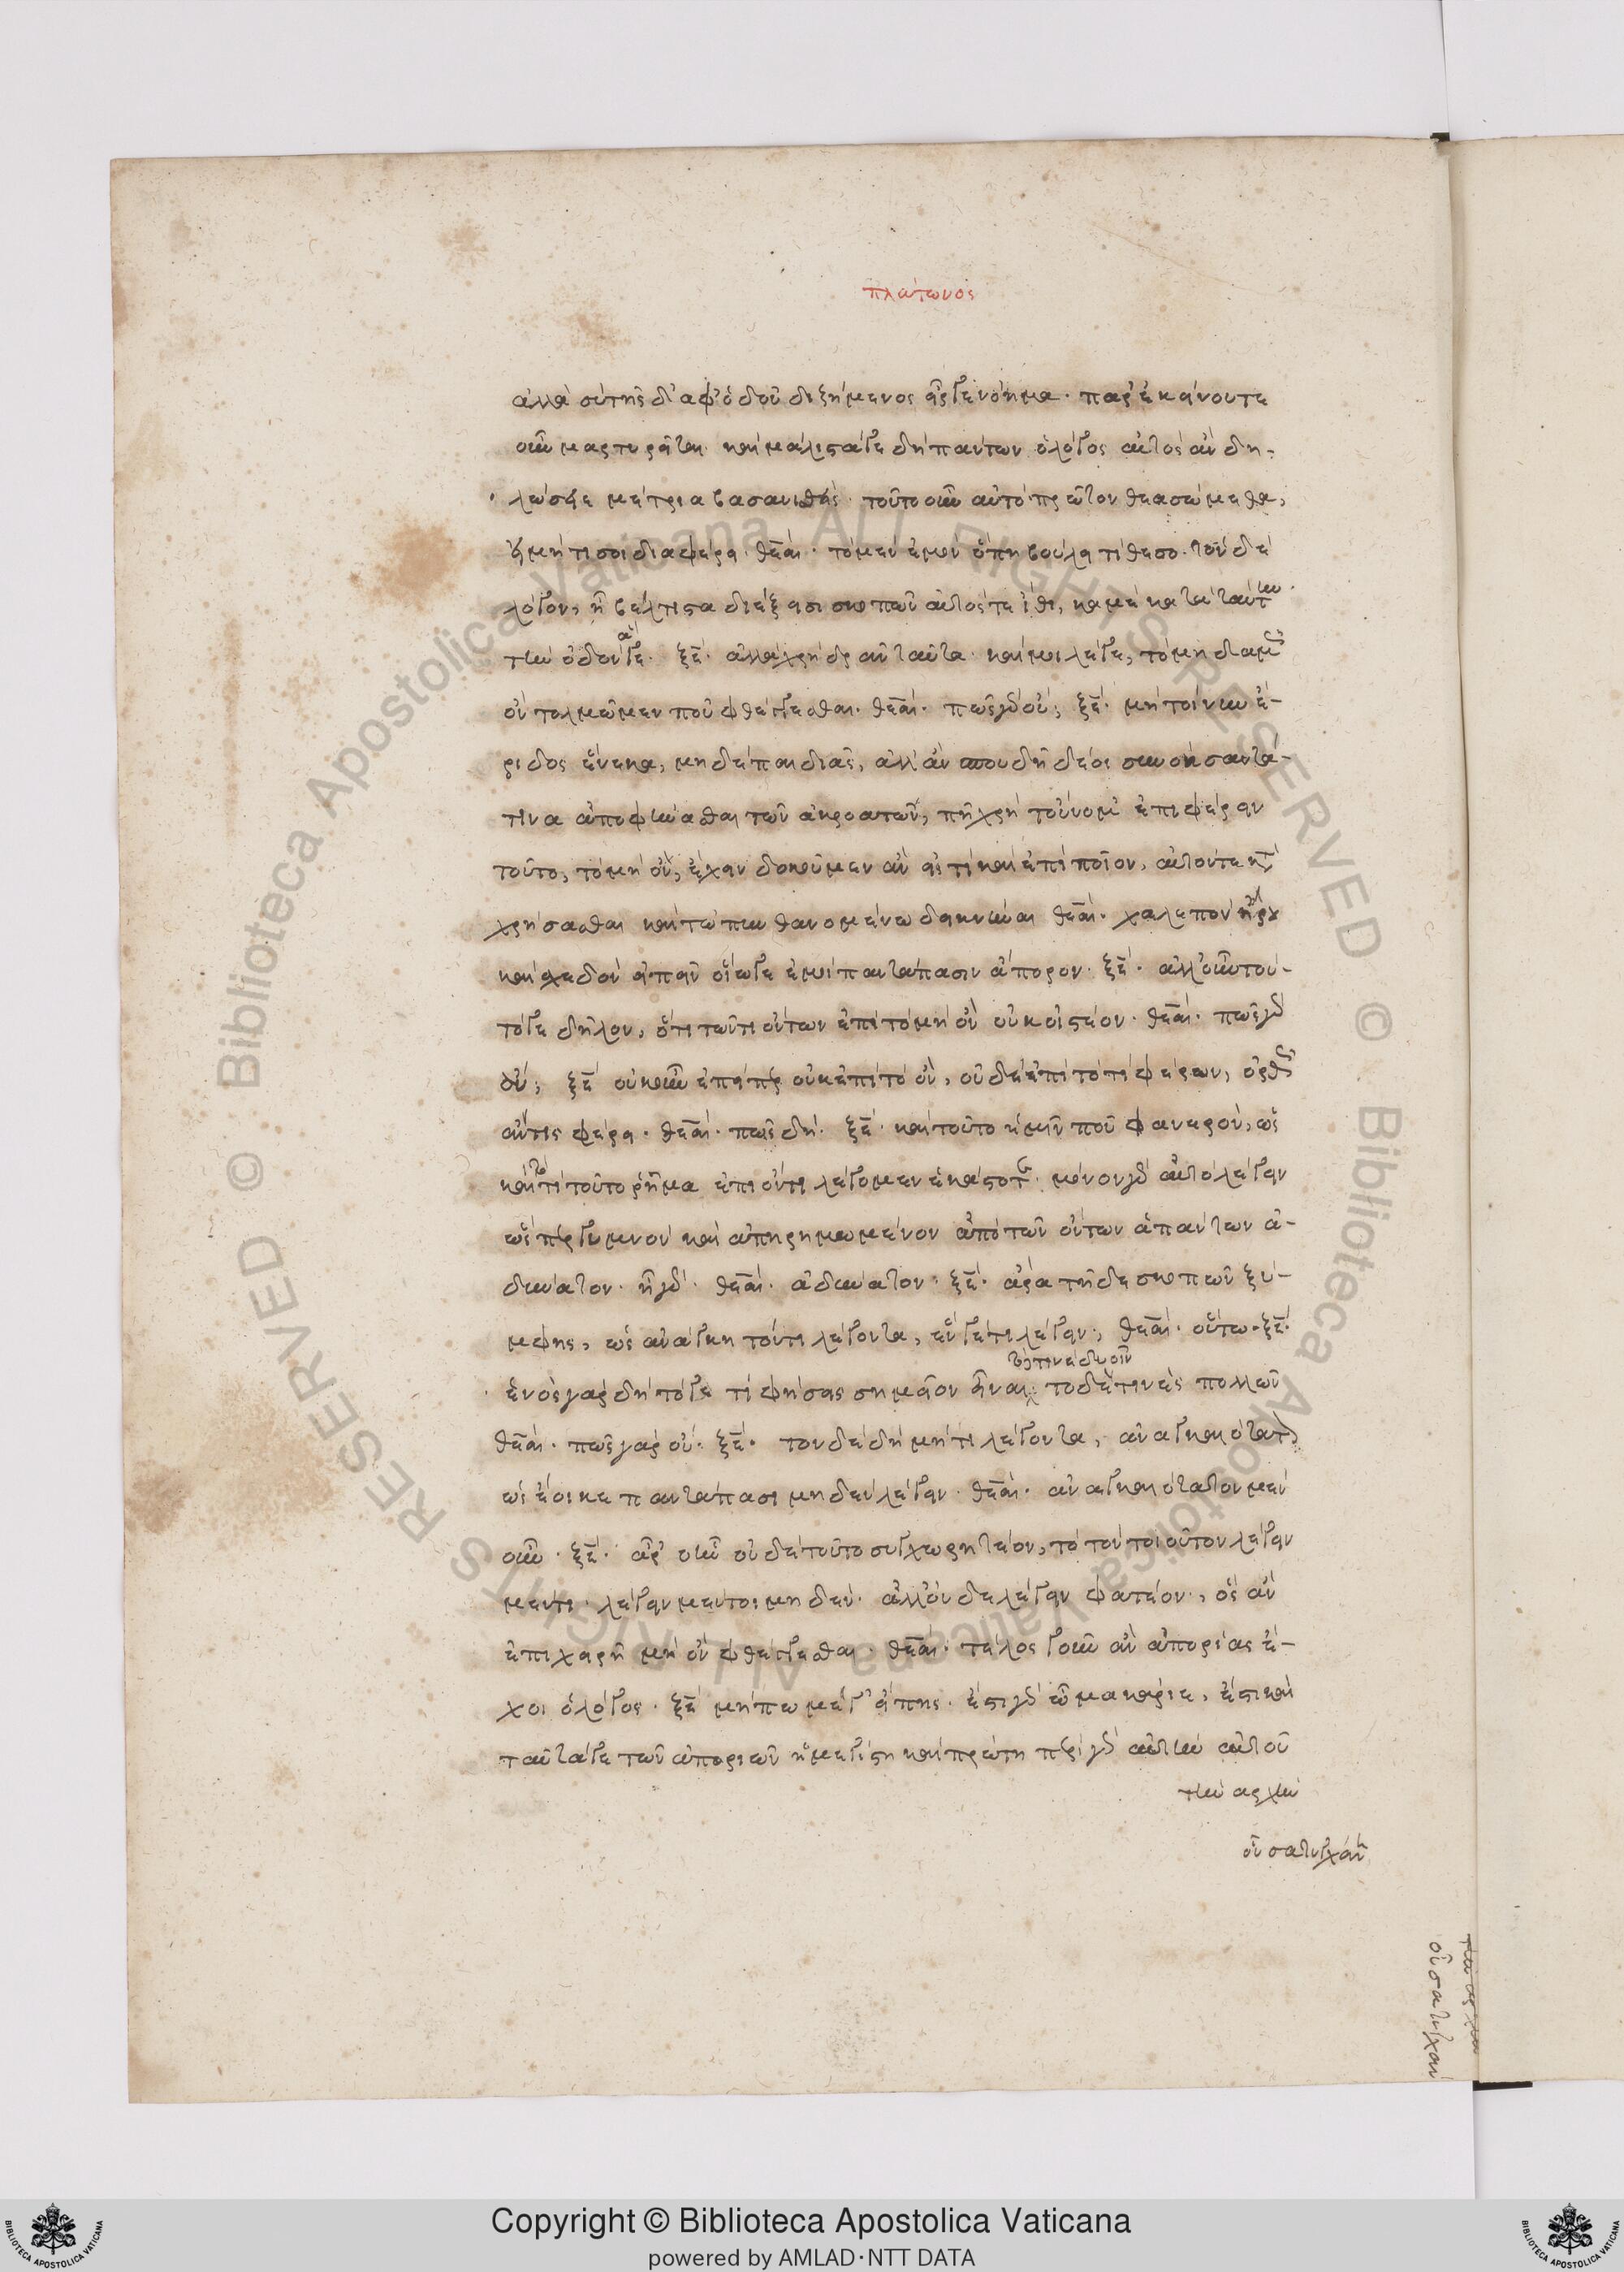 πλάτωνος
ἀλλὰ σὺ τῆς δ' ἀφ' ὁδοῦ διζήμενος εἶργε νόημα· παρ' ἐκείνου τε
οὖν μαρτυρεῖται καὶ μάλιστά γε δὴ πάντων ὁ λόγος αὐτὸς ἂν δη-
λώσειε μέτρια βασανισθείς· τοῦτο οὖν αὐτὸ πρῶτον θεασώμεθα,
εἰ μή τι σοι διαφέρει· θεαί· τὸ μὲν ἐμὸν ὅπη βούλει τίθεσο· τὸν δὲ
λόγον, ᾗ βέλτιστα διέξεισι σκοπῶν αὐτός τε ἴθι, κἀμὲ κατὰ ταύτην
τὴν ὁδὸν ἄγε· ξέ· ἀλλὰ χρὴ δρᾶν ταῦτα· καί μοι λέγε, τὸ μηδαμῶς
ὂν τολμῶμεν που φθέγγεσθαι· θεαί· πῶς γὰρ οὔ; ξέ· μὴ τοίνυν ἔ-
ριδος ἕνεκα, μηδὲ παιδιᾶς, ἀλλ' ἂν σπουδῇ δέοι συννοήσαντά
τινα ἀποφήνασθαι τῶν ἀκροατῶν, πῆ χρὴ τοὔνομ' ἐπιφέρειν
τοῦτο, τὸ μὴ ὄν, ἔχειν δοκοῦμεν ἂν εἰς τί καὶ ἐπὶ ποῖον, αὐτόν τε κατα
χρήσασθαι καὶ τῷ πυνθανομένω δεικνύναι θεαί· χαλεπὸν ἤρου
καὶ σχεδὸν εἰπεῖν οἵω γε ἐμοὶ παντάπασιν ἄπορον· ξέ· ἀλλ' οὖν τού-
τό γε δῆλον, ὅτι τῶν τι ὄντων ἐπὶ τὸ μὴ ὂν οὐκ οἰστέον· θεαί· πῶς γὰρ
ἄν; ξέ οὐκοῦν ἐπείπερ οὐκ ἐπὶ τὸ ὄν, οὐδὲ ἐπὶ τὸ τὶ φέρων, ὀρθῶς
ἄν τις φέρει· θεαί· πῶς δή· ξέ· καὶ τοῦτο ἡμῖν που φανερόν, ὡς
καὶ τὸ τὶ τοῦτο ῥῆμα ἐπὶ ὄντι λέγομεν ἑκάστοτε· μόνον γὰρ αὐτὸ λέγειν
ὥσπερ γυμνὸν καὶ ἀπηρημωμένον ἀπὸ τῶν ὄντων ἁπάντων ἀ-
δύνατον· ἢ γάρ· θεαί· ἀδύνατον· ξέ· ἆρα τῇδε σκοπῶν ξύ-
μφης, ὡς ἀνάγκη τόν τι λέγοντα, ἕν γέ τι λέγειν; θεαί· οὕτω· ξέ·
ἑνὸς γὰρ δὴ τό γε τὶ φήσεις σημεῖον εἶναι, τὸ δὲ τινὲς πολλῶν
τὸ τινὲ δυοῖν
θεαί· πῶς γὰρ οὔ· ξέ· τὸν δὲ δὴ μή τι λέγοντα, ἀναγκαιότατον
ὡς ἔοικε παντάπασι μηδὲν λέγειν· θεαί· ἀναγκαιότατον μὲν
οὖν· ξέ· ἆρ' οὖν οὐδὲ τοῦτο συγχωρητέον, τὸ τὸν τοιοῦτον λέγειν
μέν τι· λέγειν μέντοι μηδέν· ἀλλ' οὐδὲ λέγειν φατέον, ὃς ἂν
ἐπιχειρῇ μὴ ὂν φθέγγεσθαι· θεαί· τέλος γοῦν ἂν ἀπορίας ἔ-
χοι ὁ λόγος· ξέ μήπω μέγ' εἴπῃς· ἔστι γὰρ ὦ μακάριε, ἔστι καὶ
ταῦτά γε τῶν ἀποριῶν ἡ μεγίστη καὶ πρώτη περὶ γὰρ αὐτὴν αὐτοῦ
τὴν ἀρχὴν
οὖσα τυγχάνει
τὴν ἀρχὴν
οὖσα τυγχάνει